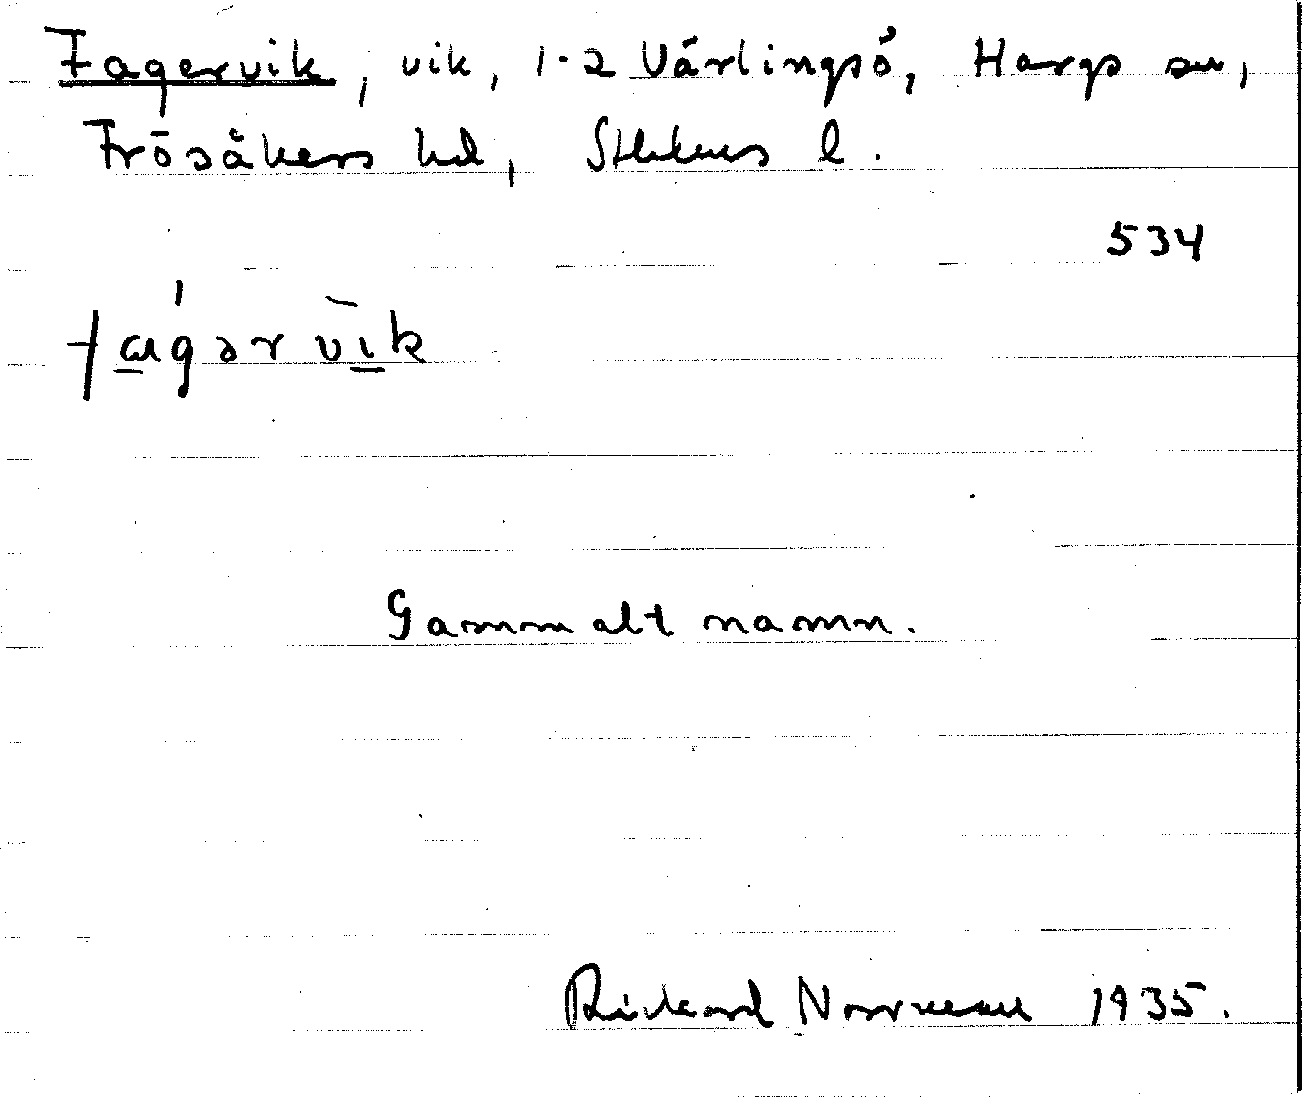 Fagervik, vik, 1-2 Värlingsö, Hargs sn,
Frösåkers hd, Sthlms l.
534
fagərvik
Gammalt namn.
Rickard Norrman 1935.